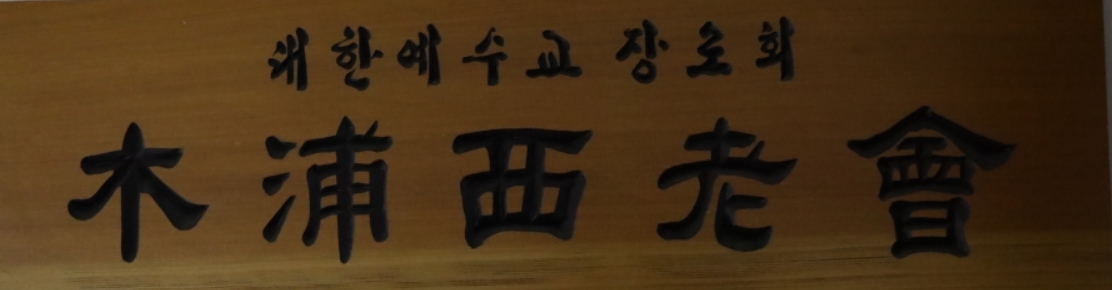 대한예수교 장로회
木浦西老會